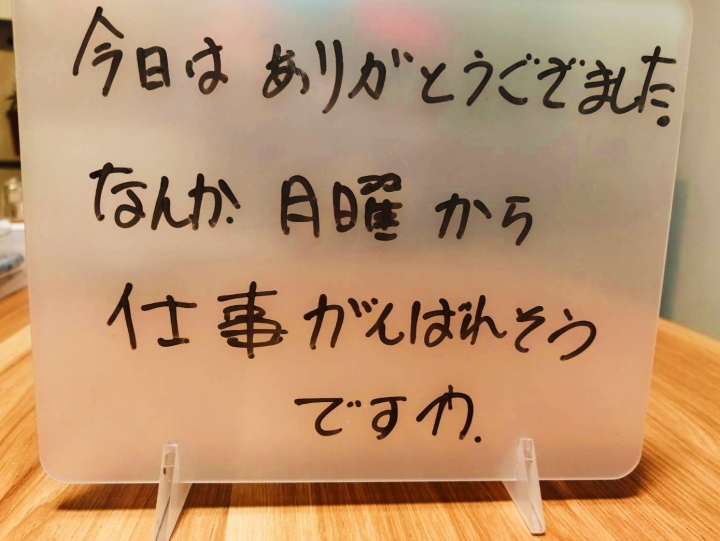 今日は ありがとうごぞました.
なんか 月曜 から
仕事 がんばれそう
ですわ.